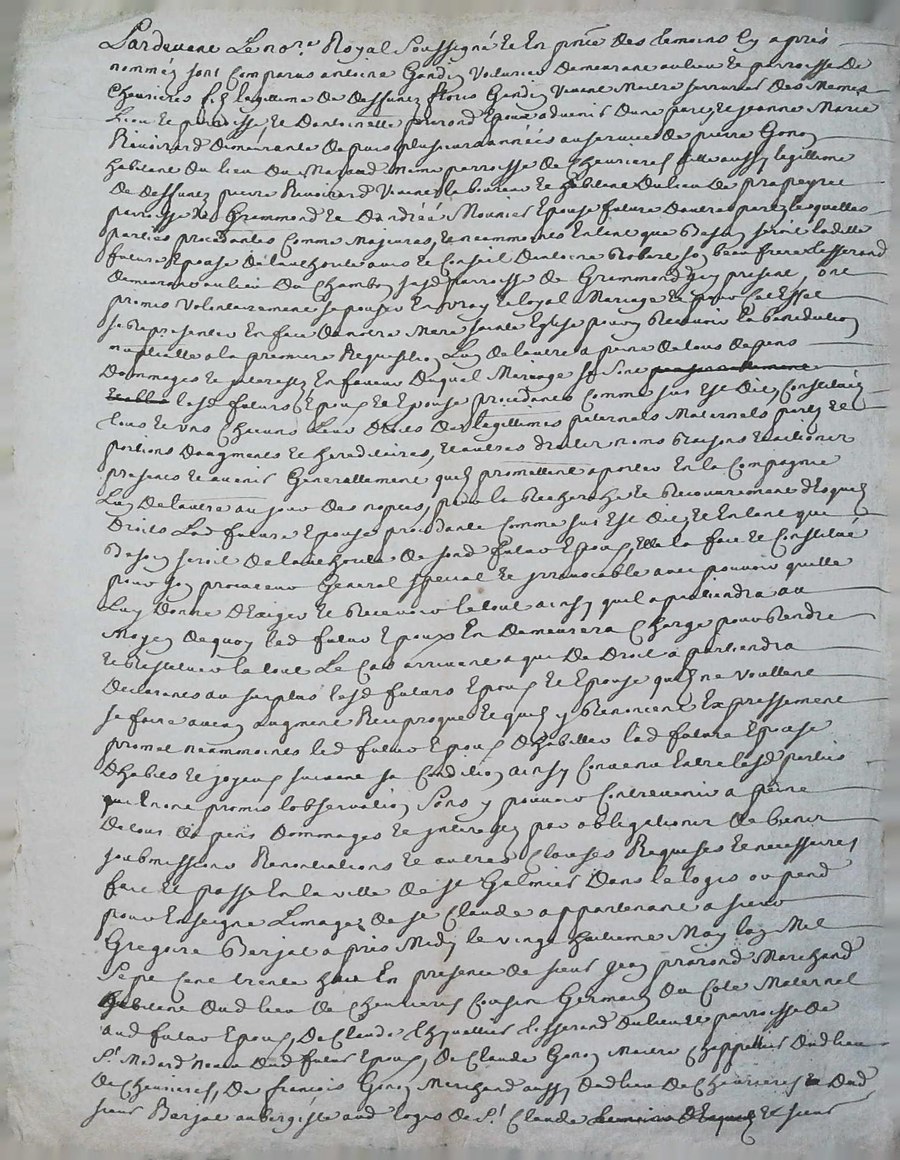 Pardevant Le no.re Royal Soussigné Et En pnce Des temoins Cy après
nommés sont Comparus antoine Gondy Voiturier Demeurant au lieu Et parroisse De
Cheurieres fils Legittime De Deffunct floris Gondy Vivant Maitre serrurier Des Memes
Lieu Et parroisse, Et D'antoinette prorond Epoux advenir D'une part, Et Jeanne Marie
Rivoirard Demeurante Depuis plusieurs années au service De pierre Gonon
habitant Du lieu Du même parroisse De Cheurieres fille aussy legittime
De Deffunct pierre Rivoirard Vivant Et habitant Du lieu De prapeyret
parroisse De Grammond Et D'andréé Mounier Epouse future D'autre part, lesquelles
parties procedantes Comme Majeures, Et neammoins Entant que Besoin seroit ladite
future Epouse De l'authorité avis Et Conseil D'antoine Robert son beau frere Tisserand
demeurant au lieu Du Chambon susd parroisse De Grammond icy present, ont
promis Volontairement s'epouser En vray Et loyal Mariage Et pour Cet Effet
se Representer En face De notre Mere sainte Eglise pour y Recevoir La benediction
nuptialle a la premiere Requisition L'un De l'autre a peine De tous Depens
Dommages Et interests, En faveur Duquel Mariage se sont
lesd futurs Epoux Et Epouse procedants Comme sus Est Dit, Constitués
tous Et uns Chacuns Leur Droits De legittimes paternels Maternels parts Et
portions D'augments Et hereditaires, Et autres Droits noms Raisons Et actions
presents Et avenir Generallement qu'ils promettent aporter En la Compagnie
L'un De l'autre au jour Des nopces, pour la Recherche Et Recouvrement D'Esquels
Droits Lad future Epouse procedante Comme sus Est Dit, Et Entant que
Besoin seroit De l'authorité De sond futur Epoux, Elle la fait Et Constitué
pour son procureur General special Et irrevocable avec pouvoir qu'elle
Luy Donne D'Exiger Et Recevoir le tout ainsy qu'il apartiendra au
Moyen De quoy led futur Epoux En Demeurera Chargé pour Rendre
Et Restituer le tout Le Cas arrivant a qui De Droit apartiendra
Declarants au surplus lesd futurs Epoux Et Epouse qu'ils ne Veullent
se faire aucun augment Reciproque Et qu'ils y Renoncent Expressement
promet neammoins led futur Epoux D'habiller lad future Epouse
D'habits Et joyaux suivant sa Condition ainsy Convenu Entre lesd parties
qui En ont promis l'observation sans y pouvoir Contrevenir a peine
De tous Depens Dommages Et interests par obligations De biens
soubmissions Renonciations Et autres Clauses Requises Et necessaires
fait Et passé En la ville De St Galmier Dans le logis ou pend
pour Enseigne L'image De St Claude appartenant a sieur
Gregoire Barjat après Midy le vingt huitieme May l'an Mil
Sept Cent trente huit En presence De sieur jean prorond Marchand
habitant Dud lieu de Cheurieres Cousin Germain Du Coté Maternel
aud futur Epoux, De Claude Tisserand Du lieu Et parroisse De
St Medard Neveu Dud futur Epoux, De Claude Gonon Maitre Chappellier Dud lieu
De Cheurieres, De françois Gonon Marchand aussy Dud lieu De Cheurieres Dud
sieur Barjat aubergiste aud logis De St Claude Et sieur